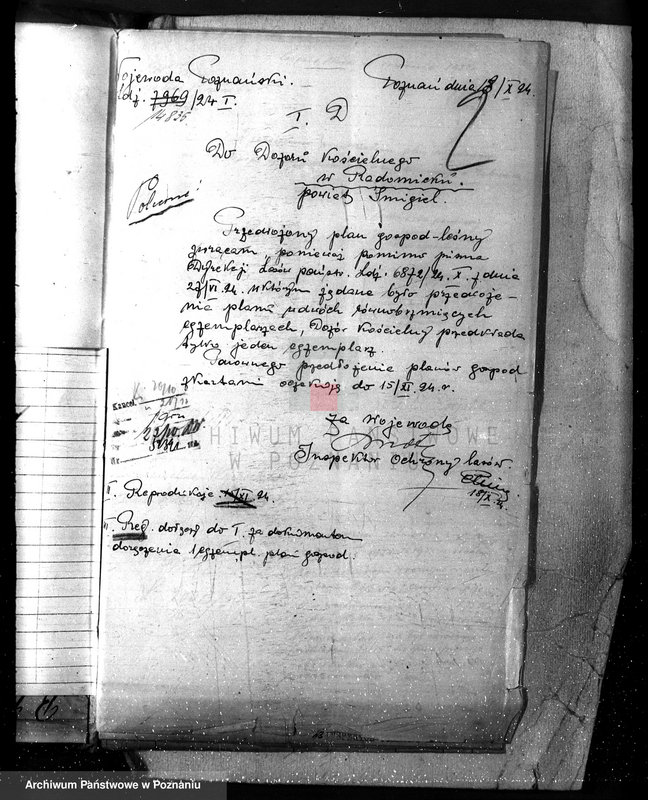 Wojewoda Poznański.
Ldz. 7969/24 I.
14835
Poznań dnia 18/X 24.
I. D
Do Dozoru Kościelnego
w Radomicku.
powiat Śmigiel.
Polecono!
Przedłożony plan gospod-leśny
zwracam, ponieważ pomimo pisma
Dyrekcji Lasów państw. Ldz. 6872/24. X z dnia
27/VI 24. w którym żądane było przedłoże-
nie planu w dwóch równobrzmiących
egzemplarzach, Dozór Kościelny przedkłada
tylko jeden egzemplarz.
Ponownego przedłożenia planów gospod
z kartami oczekuję do 15/XI. 24. r.
Za Wojewodę
Inspektor Ochrony lasów.
18/X. 24.
Kancel.
23/10
II. Reprodukcja /XI 24.
III. Reg. dołączyć do I. za dokumentem
doręczenia 1 egzempl. plan gospod.
ARCHIWUM PAŃSTWOWE
W POZNANIU
Archiwum Państwowe w Poznaniu